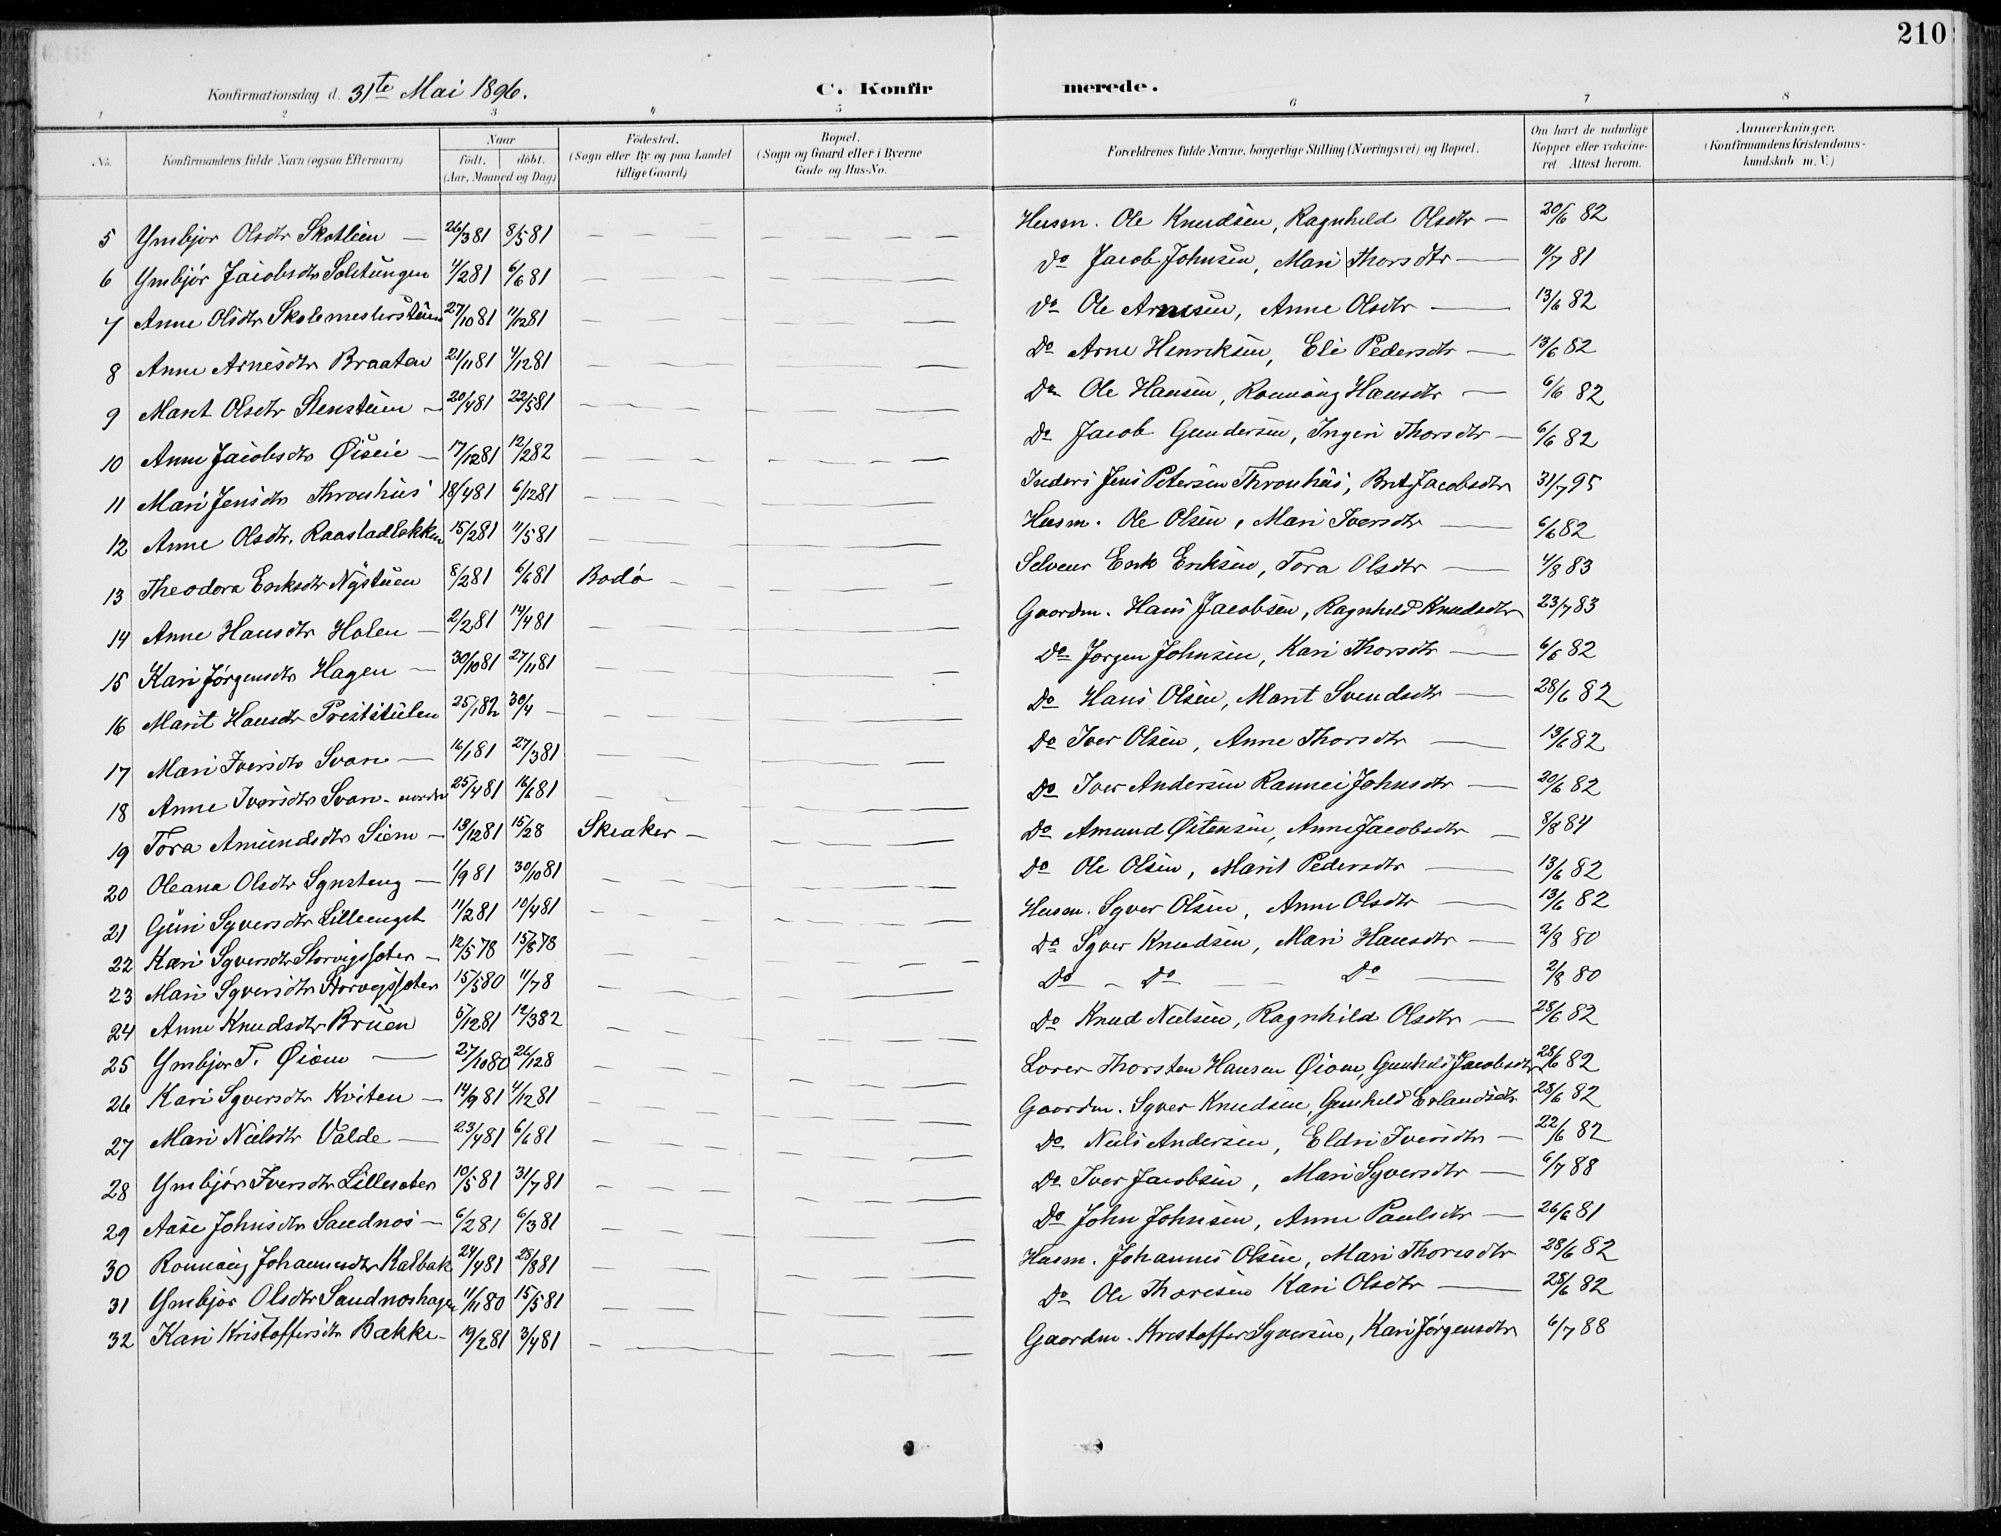 210
Konfirmationsdag d. 31te Mai 1896. C. Konfirmerede.
1 2 3 4 5 6 7 8
No. Konfirmandens fulde Navn (ogsaa Efternavn) Naar født. døbt. (Aar, Maaned og Dag) Fødested. (Sogn eller By og paa Landet tillige Gaard) Bopæl. (Sogn og Gaard eller i Byerne Gade og Hus-No. Forældrenes fulde Navne, borgerlige Stilling (Næringsvei) og Bopæl. Om havt de naturlige Kopper eller vakcineret Attest herom. Anmærkninger. (Konfirmandens Kristendomskundskab m. V.)
5 Ymbjør Olsdtr Skotlien — 26/3 81 8/5 81 — — Husm. Ole Knudsen, Ragnhild Olsdtr — 20/6 82
6 Ymbjør Jacobsdtr Soletungen 4/2 81 6/6 81 — — Do Jacob Johnsen, Mari Thorsdtr — 11/7 81
7 Anne Olsdtr Skolemesterstuen 27/10 81 11/12 81 — — Do Ole Arnesen, Anne Olsdtr — 13/6 82
8 Anne Arnesdtr Braaten 21/11 81 4/12 81 — — Do Arne Henriksen, Eli Pedersdtr — 13/6 82
9 Marit Olsdtr Stenstuen — 20/4 81 22/5 81 — — Do Ole Hansen, Rønnaug Hansdtr — 6/6 82
10 Anne Jacobsdtr Øiseie — 17/12 81 12/2 82 — — Do Jacob Gundersen, Ingeri Thorsdtr — 6/6 82
11 Mari Jensdtr Thronhus 18/4 81 6/12 81 — — Inderi Jens Petersen Thronhus, Brit Jacobsdtr 31/7 95
12 Anne Olsdtr. Raastadløkken 15/2 81 11/5 81 — — Husm. Ole Olsen, Mari Iversdtr — 6/6 82
13 Theodora Eriksdtr Nystuen 8/2 81 6/6 81 Bodø — — Selveier Erik Eriksen, Tora Olsdtr — 4/8 83
14 Anne Hansdtr Holen — 2/2 81 14/4 81 — — Gaardm. Hans Jacobsen, Ragnhild Knudsdtr 23/7 83
15 Kari Jørgensdtr Hagen — 30/10 81 27/11 81 — — Do Jørgen Johnsen, Kari Thorsdtr — 6/6 82
16 Marit Hansdtr Prestulen 25/1 82 30/4 — — — Do Hans Olsen, Marit Svendsdtr — 28/6 82
17 Mari Iversdtr Svare — 16/1 81 27/3 81 — — Do Iver Olsen, Anne Thorsdtr — 13/6 82
18 Anne Iversdtr Svare nordre 25/4 81 16/6 81 — — Do Iver Andersen Rannei Johnsdtr — 20/6 82
19 Tora Amundsdtr Siem — 13/12 81 15/2 8 Skeaker — — Do Amund Østensen, Anne Jacobsdtr — 8/8 84
20 Oleana Olsdtr Synsteng — 1/9 81 30/10 81 — — Do Ole Olsen, Marit Pedersdtr — 13/6 82
21 Guri Syversdtr Lilleenget 11/2 81 10/4 81 — — Husm. Syver Olsen, Anne Olsdtr — 13/6 82
22 Kari Syversdtr Storvigsæter — 12/5 78 15/8 78 — — Do Syver Knudsen, Mari Hansdtr — 2/8 80
23 Mari Syversdtr Storvigsæter 15/5 80 11/7 8 — — Do — Do — — Do — 2/8 80
24 Anne Knudsdtr Bruen 5/12 81 12/3 82 — — Do Knud Nielsen, Ragnhild Olsdtr — 28/6 82
25 Ymbjør T. Øiom — 27/10 80 26/12 8 — — Lærer Thorsten Hansen Øiom, Gunhild Jacobsdtr 28/6 82
26 Kari Syversdtr Kviten — 14/9 81 4/12 81 — — Gaardm. Syver Knudsen, Gunhild Erlandsdtr 28/6 82
27 Mari Nielsdtr Valde — 23/4 81 6/6 81 — — Do Niels Andersen, Eldri Iversdtr — 22/6 82
28 Ymbjør Iversdtr Lillesæter 10/5 81 31/7 81 — — Do Iver Jacobsen, Mari Syversdtr — 6/7 88
29 Aase Johnsdtr Sandnos — 6/2 81 6/3 81 — — Do John Johnsen, Anne Paulsdtr — 26/6 81
30 Rønnaug Johannesdtr Kalbak 24/4 81 28/8 81 — — Husm. Johannes Olsen, Mari Thoresdtr 28/6 82
31 Ymbjør Olsdtr Sandnoshagen 11/11 80 15/5 81 — — Do Ole Thoresen Kari Olsdtr — 28/6 82
32 Kari Kristoffersdtr Bakke — 19/2 81 3/4 81 — — Gaardm. Kristoffer Syversen, Kari Jørgensdtr 6/7 88